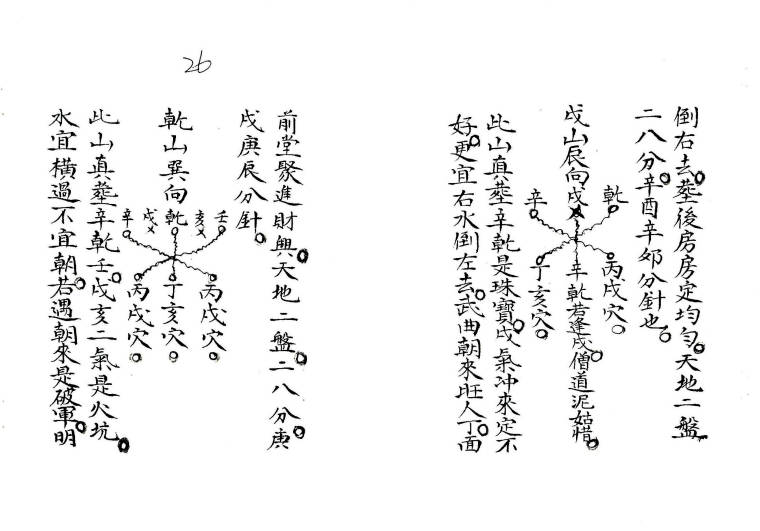 倒右去。塟後房房定均勻。天地二盤
二八分。辛酉辛卯分針也。
戌山辰向
乾
戌
辛
丙戌穴。
辛乾若逢戌僧道泥姑惜。
丁亥穴。
此山真塟辛乾是珠寶。戌氣冲來定不
好。更宜右水倒左去。武曲朝來旺人丁。面
26
前堂聚進財興。天地二盤二八分。庚
戌庚辰分針。
乾山巽向
壬
亥
乾
戌
辛
丙戌穴。
丁亥穴。
丙戌穴。
此山真塟辛乾壬。戌亥二氣是火坑。
水宜橫過不宜朝。若遇朝來是破軍。明